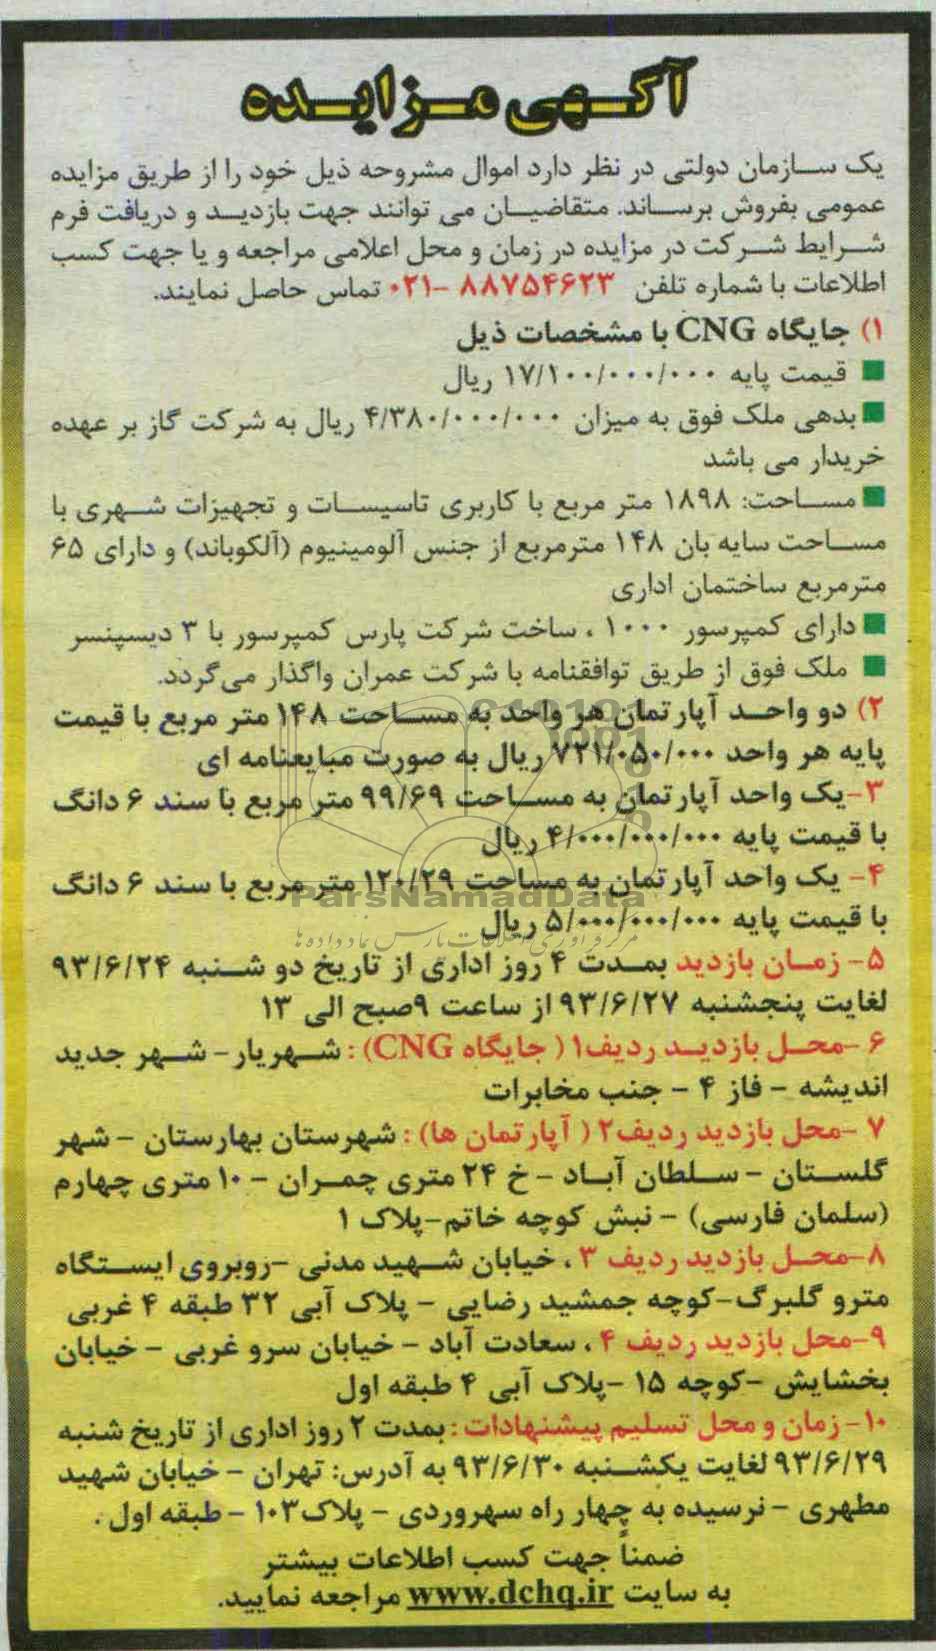 آگهی مزایده
یک سازمان دولتی در نظر دارد اموال مشروحه ذیل خود را از طریق مزایده
عمومی بفروش برساند. متقاضیان می توانند جهت بازدید و دریافت فرم
شرایط شرکت در مزایده در زمان و محل اعلامی مراجعه و یا جهت کسب
اطلاعات با شماره تلفن ۸۸۷۵۴۶۲۳ -۰۲۱ تماس حاصل نمایند.
۱) جایگاه CNG با مشخصات ذیل
■ قیمت پایه ۱۷/۱۰۰/۰۰۰/۰۰۰ ریال
■ بدهی ملک فوق به میزان ۴/۳۸۰/۰۰۰/۰۰۰ ریال به شرکت گاز بر عهده
خریدار می باشد
■ مساحت: ۱۸۹۸ متر مربع با کاربری تاسیسات و تجهیزات شهری با
مساحت سایه بان ۱۴۸ مترمربع از جنس آلومینیوم (آلکوباند) و دارای ۶۵
مترمربع ساختمان اداری
■ دارای کمپرسور ۱۰۰۰ ، ساخت شرکت پارس کمپرسور با ۳ دیسپنسر
■ ملک فوق از طریق توافقنامه با شرکت عمران واگذار می گردد.
۲) دو واحد آپارتمان هر واحد به مساحت ۱۴۸ متر مربع با قیمت
پایه هر واحد ۷۲۱/۰۵۰/۰۰۰ ریال به صورت مبایعنامه ای
۳-یک واحد آپارتمان به مساحت ۹۹/۶۹ متر مربع با سند ۶ دانگ
با قیمت پایه ۴/۰۰۰/۰۰۰/۰۰۰ ریال
۴- یک واحد آپارتمان به مساحت ۱۲۰/۲۹ متر مربع با سند ۶ دانگ
ParsNamadData
با قیمت پایه ۵/۰۰۰/۰۰۰/۰۰۰ ریال
مرکز فرآوری اطلاعات پارس نماد داده ها
۵- زمان بازدید بمدت ۴ روز اداری از تاریخ دو شنبه ۹۳/۶/۲۴
لغایت پنجشنبه ۹۳/۶/۲۷ از ساعت ۹صبح الی ۱۳
۶ -محل بازدید ردیف۱ ( جایگاه CNG) : شهریار- شهر جدید
اندیشه - فاز ۴ - جنب مخابرات
۷ -محل بازدید ردیف۲ ( آپارتمان ها) : شهرستان بهارستان - شهر
گلستان - سلطان آباد - خ ۲۴ متری چمران - ۱۰ متری چهارم
(سلمان فارسی) - نبش کوچه خاتم-پلاک ۱
۸-محل بازدید ردیف ۳ ، خیابان شهید مدنی -روبروی ایستگاه
مترو گلبرگ-کوچه جمشید رضایی - پلاک آبی ۳۲ طبقه ۴ غربی
۹-محل بازدید ردیف ۴ ، سعادت آباد - خیابان سرو غربی - خیابان
بخشایش -کوچه ۱۵ -پلاک آبی ۴ طبقه اول
۱۰- زمان و محل تسلیم پیشنهادات : بمدت ۲ روز اداری از تاریخ شنبه
۹۳/۶/۲۹ لغایت یکشنبه ۹۳/۶/۳۰ به آدرس: تهران - خیابان شهید
مطهری - نرسیده به چهار راه سهروردی - پلاک۱۰۳ - طبقه اول .
ضمناً جهت کسب اطلاعات بیشتر
به سایت www.dchq.ir مراجعه نمایید.